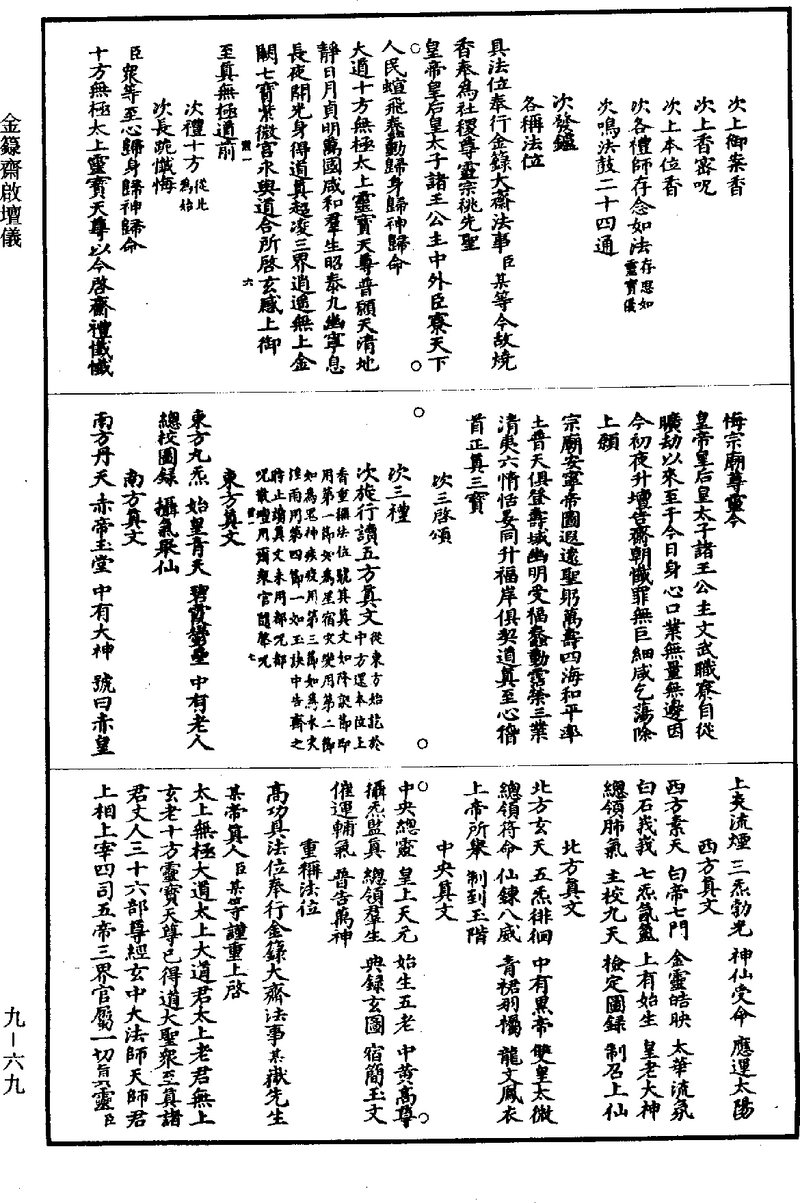 金籙齋啟壇儀
次上御案香
次上香密呪
次上本位香
次各禮師存念如法存思如靈寶儀
次鳴法鼓二十四通
次發鑪
各稱法位
具法位奉行金籙大齋法事臣某等今故燒
香奉為社稷尊靈宗祧先聖
皇帝皇后皇太子諸王公主中外臣寮天下
人民蝖飛蠢動歸身歸神歸命
大道十方無極太上靈寶天尊普願天清地
靜日月貞明萬國咸和羣生昭泰九幽寧息
長夜開光身得道真超凌三界逍遥無上金
闕七寶紫微宮永與道合所啓玄感上御
至真無極道前
次禮十方從此為始
次長跪懺悔
臣衆等至心歸身歸神歸命
十方無極太上靈寶天尊以今啓齋禮懺懺
悔宗廟尊靈今
皇帝皇后皇太子諸王公主文武職寮自從
曠劫以來至于今日身心口業無量無邊因
今初夜升壇告齋朝懺罪無巨細咸乞蕩除
上願
宗廟安寧帝圖遐遠聖躬萬壽四海和平率
土普天俱登壽域幽明受福蠢動霑榮三業
清夷六情恬晏同升福岸俱契道真至心稽
首正真三寶
次三啓頌
次三禮
次旋行讀五方真文從東方始訖於中方還本位上
香重稱法位號其真文如降訣節即用第一節如為星宿灾變用第二節
如為思神疾疫用第三節如為水灾淫雨用第四節一如玉訣中告齋之
時止讀真文未用都呪都呪散壇用爾衆官同聲呪
東方真文
東方九炁 始皇青天 碧霞鬱壘 中有老人
總校圖録 攝氣聚仙
南方真文
南方丹天 赤帝玉堂 中有大神 號曰赤皇
上炎流煙 三炁勃光 神仙受命 應運太陽
西方真文
西方素天 白帝七門 金靈皓映 太華流氛
白石峩峩 七炁氤氳 上有始生 皇老大神
總領肺氣 主校九天 檢定圖録 制召上仙
北方真文
北方玄天 五炁徘徊 中有黑帝 雙皇太微
總領符命 仙鍊八威 青裙羽襡 龍文鳳衣
上帝所舉 制到玉階
中央真文
中央總靈 皇上天元 始生五老 中黄高尊
攝炁監真 總領羣生 典録玄圖 宿簡玉文
催運輔氣 普告萬神
重稱法位
高功具法位奉行金籙大齋法事某嶽先生
某帝真人臣某等謹重上啓
太上無極大道太上大道君太上老君無上
玄老十方靈寶天尊已得道大聖衆至真諸
君丈人三十六部尊經玄中大法師天師君
上相上宰四司五帝三界官屬一切真靈臣
九－六九